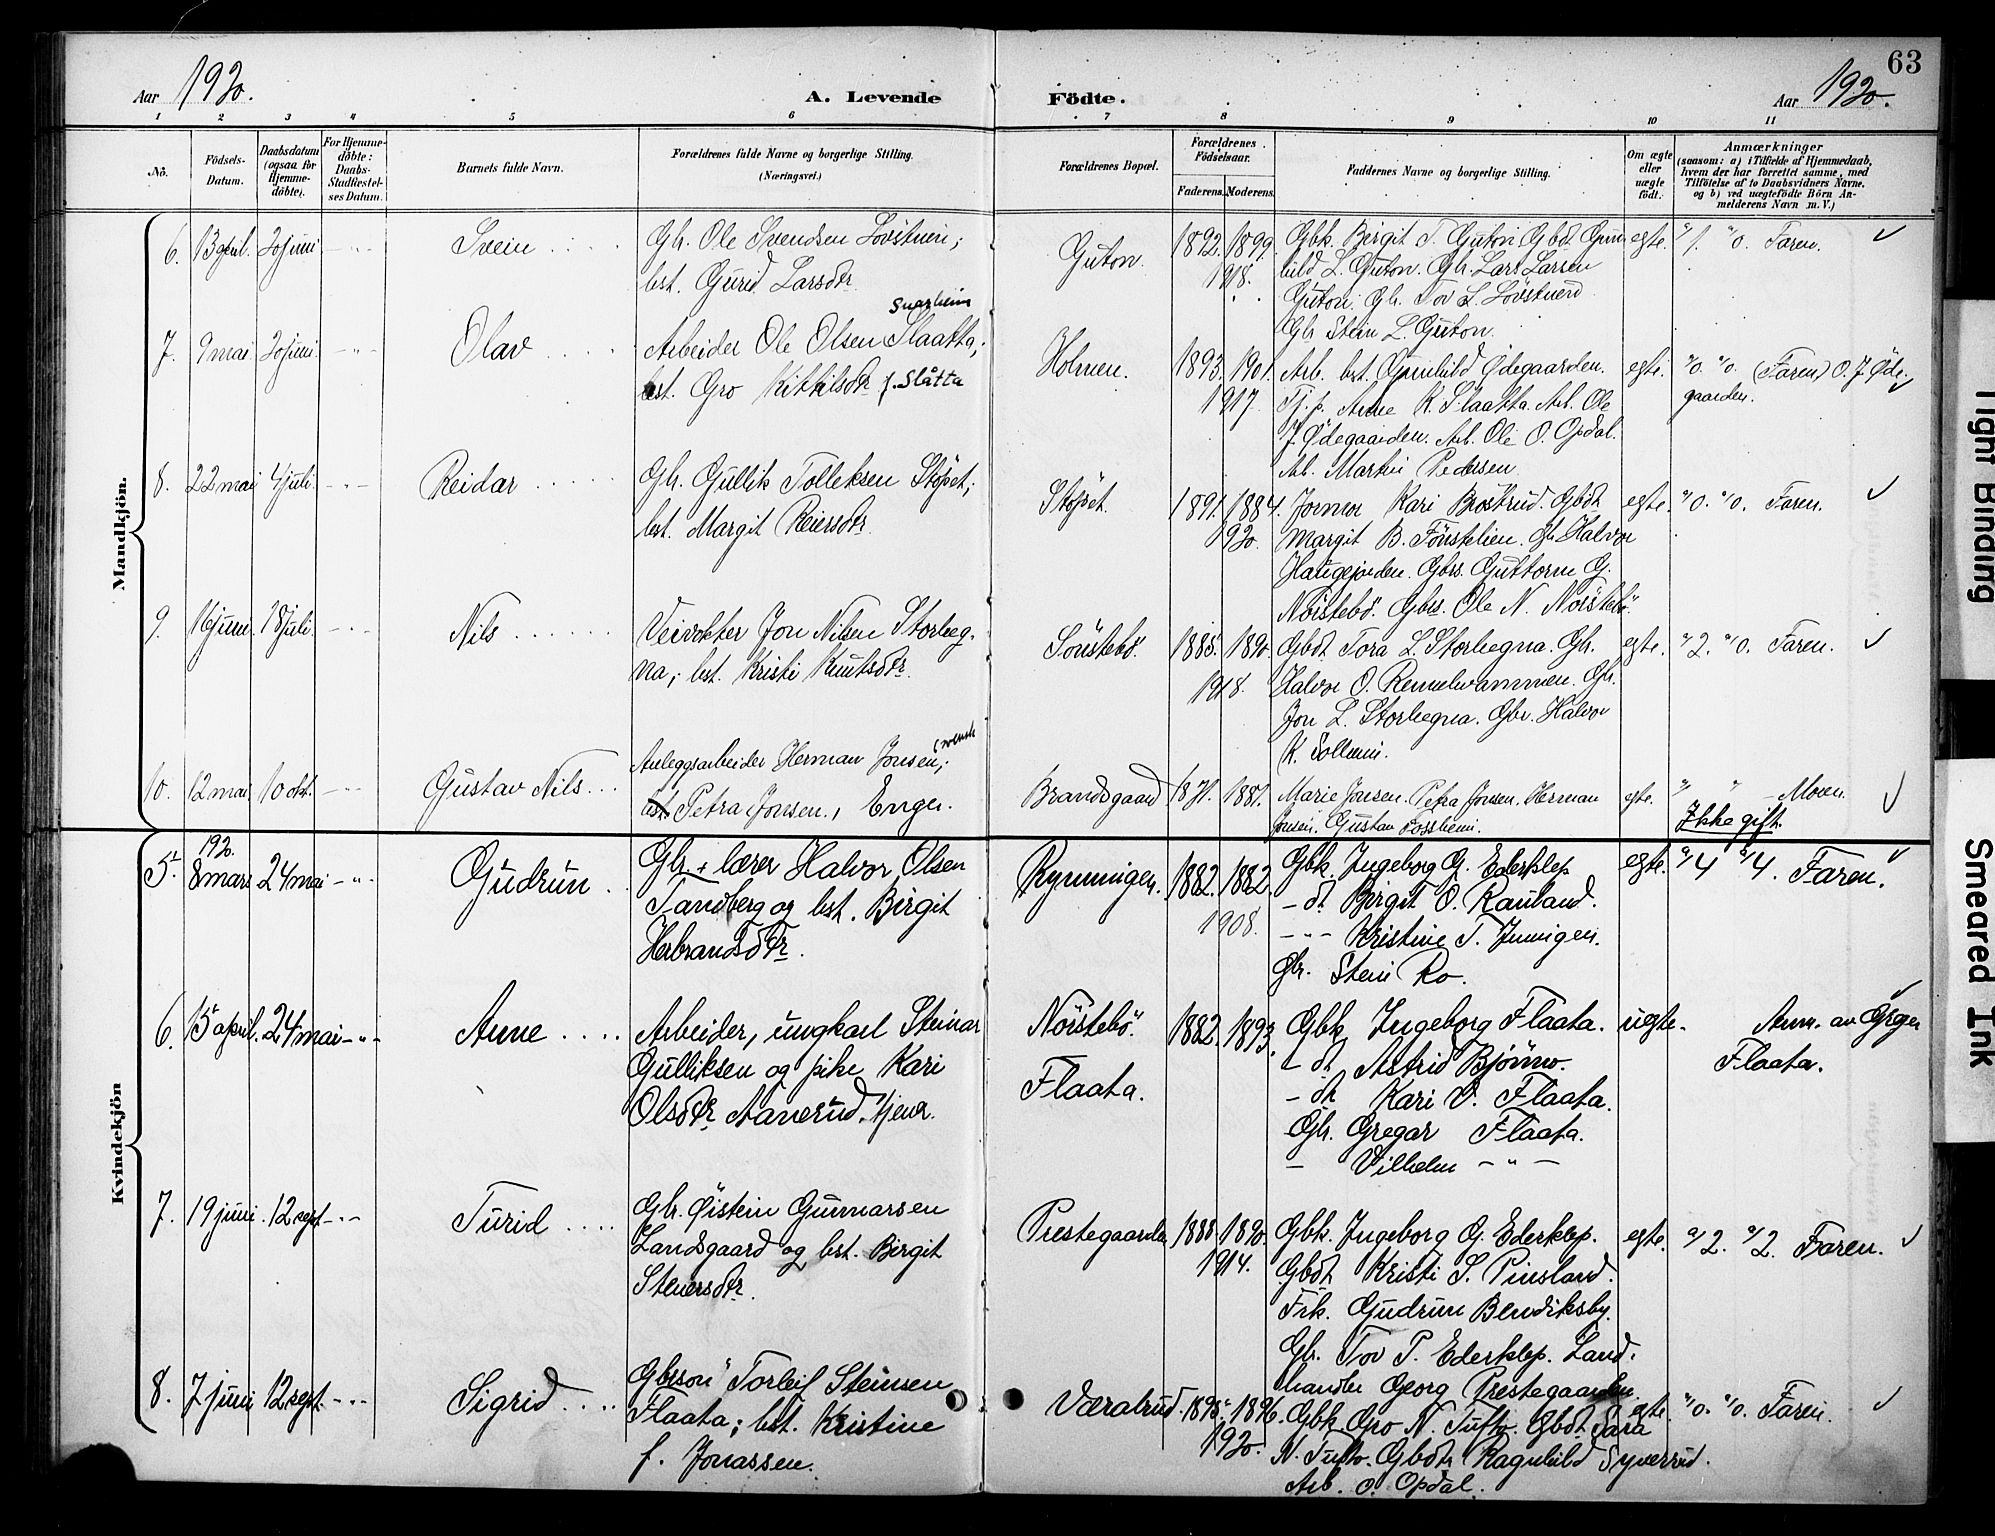 63
Aar 1920.
A. Levende
Födte.
Aar 1920.
1 2 3 4 5 6 7 8 9 10 11
No.
Födsels-
Datum.
Daabsdatum
(ogsaa for
Hjemme-
döbte).
For Hjemme-
döbte:
Daabs-
Stadfæstel-
ses Datum.
Barnets fulde Navn.
Forældrenes fulde Navne og borgerlige Stilling.
(Næringsvei.)
Forældrenes Bopæl.
Forældrenes
Födselsaar.
Faderens. Moderens.
Faddernes Navne og borgerlige Stilling.
Om ægte
eller
uægte
födt.
Anmærkninger
(saasom: a) i Tilfælde af Hjemmedaab,
hvem der har forrettet samme, med
Tilföielse af to Daabsvidners Navne,
og b) ved uægtefödte Börn An-
melderens Navn m. V.)
Mandkjön.
6. 13 april. 20 juni - " - Svein
Gbr. Ole Svendsen Lövstuen;
bst. Gurid Larsdtr.
Guton. 1892. 1899.
1918.
Gbk. Birgit T. Guton Gbdt Gun-
hild L. Guton. Gbr. Lars Larsen
Guton. Gbr. Tov L. Lövstuen
Gbr Stein L. Guton.
egte "/1. "/0. Faren.
7. 9 mai 20 juni. - " - Olav
Arbeider Ole Olsen Slaatta;
bst. Gro Kittilsdtr f. Slåtta
Holmen. 1893. 1901.
1917.
Arb. bst. Gunhild Ødegaarden.
Tj.p. Anne K. Slaatta. Arb. Ole
J. Ødegaarden. Arb. Ole O. Opdal.
Arb. Martin Pedersen.
egte. "/0. "/0. (Faren) O. J. Øde-
gaarden.
8. 22 mai 4 juli. - " - Reidar
Gbr. Gullik Tolleksen Stöpet;
bst. Margit Reiersdtr.
Stöpet. 1891. 1884.
1920.
Jormor Kari Brostrud. Gbdt
Margit B. Fönstelien. Gbr Halvor
Haugejorden. Gbrs. Guttorm G.
Nörstebö. Gbrs. Ole N. Nörstebö.
egte. "/0. "/0. Faren.
9. 16 juni 18 juli. - " - Nils
Veivokter Jon Nilsen Storheg-
na; bst. Kristi Knutsdtr.
Sönstebö. 1885. 1890.
1918.
Gbdt. Tora L. Storhegna. Gbr.
Halvor O. Remelwammen. Gbr.
Jon L. Storhegna. Gbr. Halvor
K. Solheim.
egte. "/2. "/0. Faren.
10. 12 mai. 10 okt. - " - Gustav Nils
Anleggsarbeider Herman Jonsen; svensk
Petra Jonsen, Enger.
Brandsgaard 1871. 1881.
Marie Jonsen. Petra Jonsen. Herman
Jonsen. Gustav Fossheim.
egte. " " - Moren.
Ikke gift.
Kvindekjön
1920.
5. 8 mars 24 mai - " - Gudrun
Gbr. + lærer Halvor Olsen
Tandberg og bst. Birgit
Herbrandsdtr.
Rynningen. 1882. 1882.
1908.
Gbk. Ingeborg G. Ederklep
- dt Birgit O. Rauland.
- " - Kristine T. Juvigen.
Gbr. Stein Ro.
egte. "/4 "/4. Faren.
6. 15 april. 24 mai - " - Anne
Arbeider, ungkarl Steinar
Gulliksen og pike Kari
Olsdtr Aanerud. Hjem.
Nörstebö.
Flaata.
1882. 1893.
Gbk. Ingeborg Flaata.
- dt Astrid Björmo.
- dt Kari V. Flaata.
Gbr. Gregar Flaata.
- Vilhelm - " -
uegte. Anm. av Greger
Flaata.
7. 19 juni. 12 sept. - " - Turid
Gbr. Øistein Gunnarsen
Landsgaard og bst. Birgit
Steinersdtr.
Prestegaarden 1888. 1890.
1914.
Gbk. Ingeborg G. Ederklep.
Gbdt Kristi S. Pinsland.
Frk. Gudrun Bendiksby.
Gbr. Tov P. Ederklep. Land-
handler Georg Prestegaarden.
egte. "/2. "/2. Faren.
8. 7 juni 12 sept. - " - Sigrid
Gbrson Torleif Steinsen
Flaata; bst. Kristine
f. Jonassen.
Væralrud. 1898. 1896.
1920.
Gbk. Gro N. Tufto. Gbdt Sara
N. Tufto. Gbdtr Ragnhild Syverrud.
Arb. O. Opdal.
egte. "/0. "/0. Faren.
Tight Binding
Smeared Ink